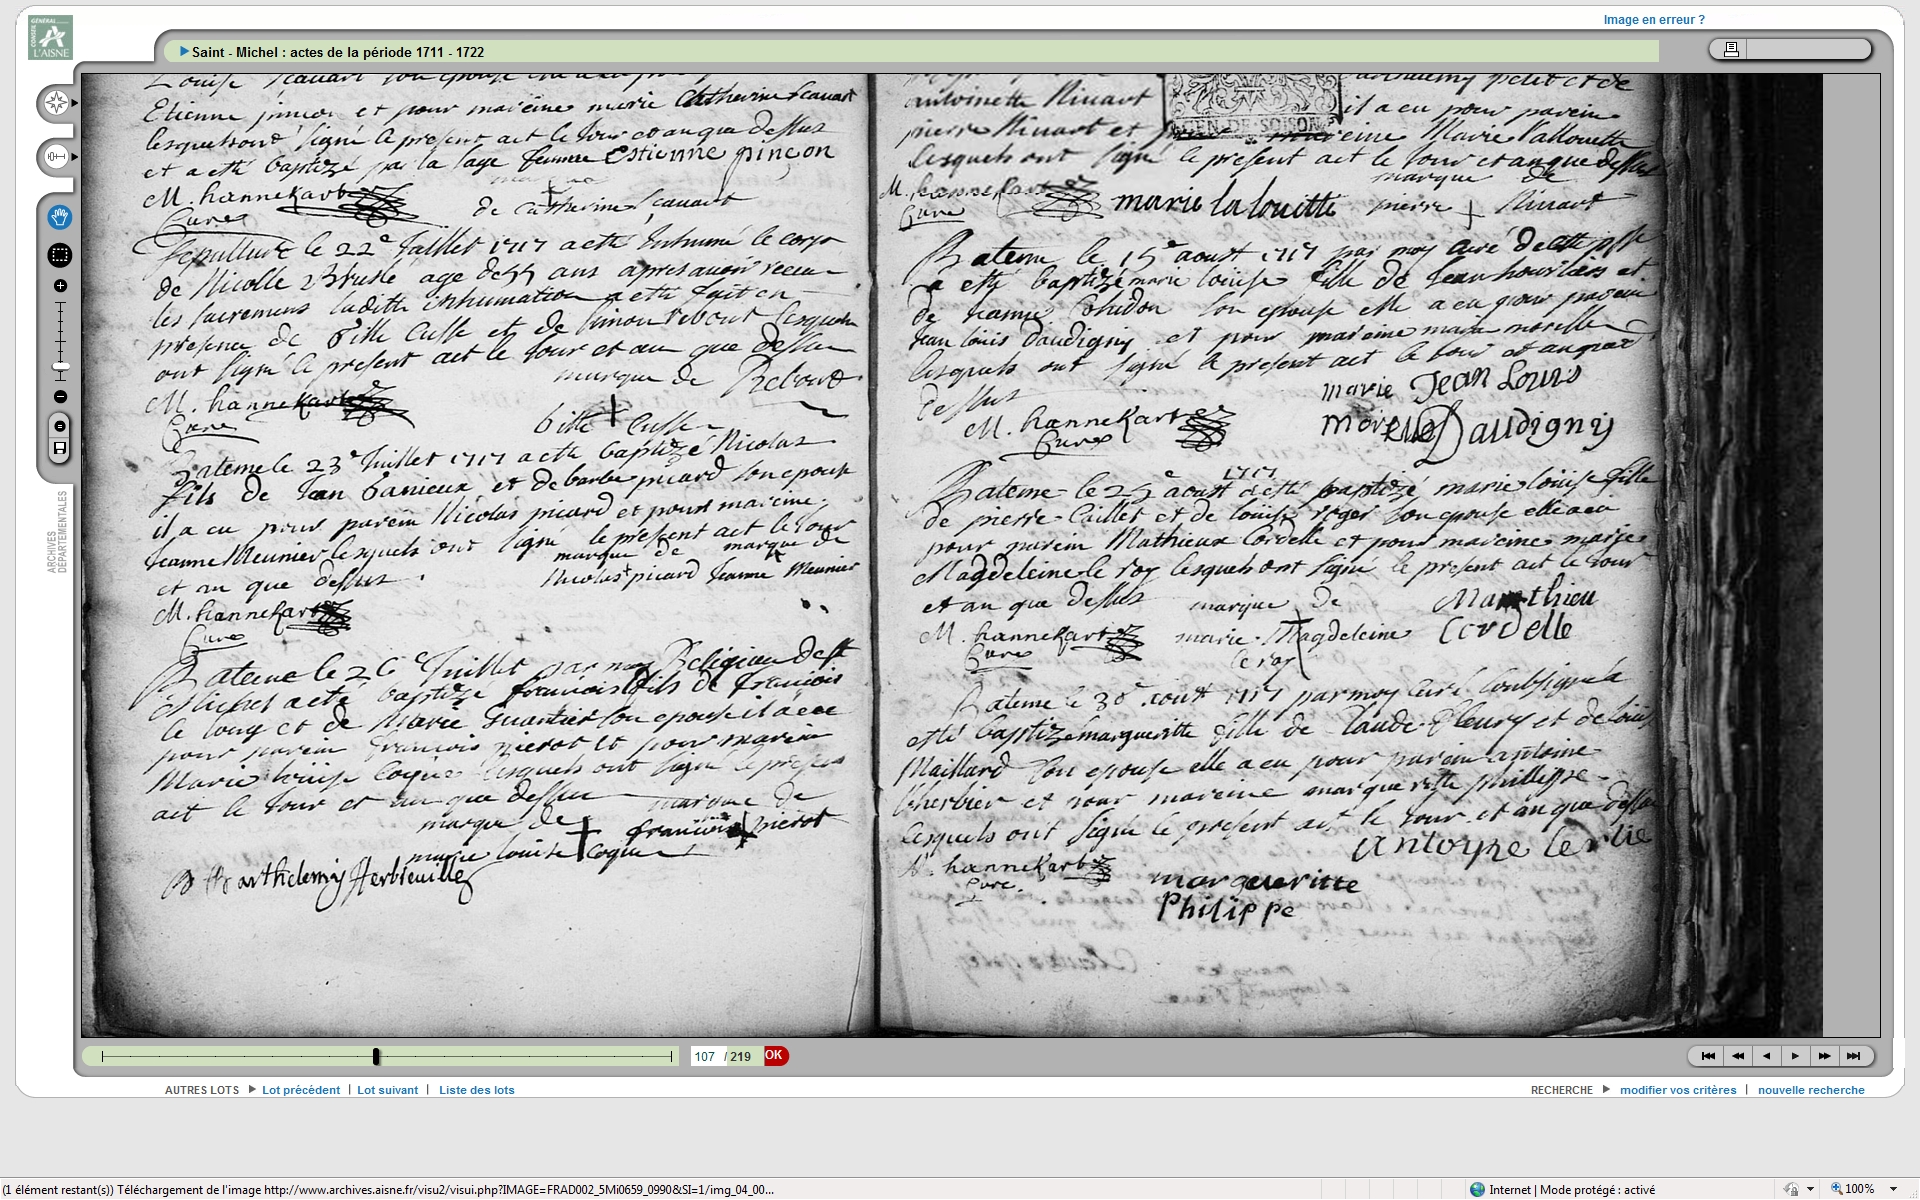 Image en erreur ?
CONSEIL GÉNÉRAL
L'AISNE
Saint - Michel : actes de la période 1711 - 1722
ARCHIVES DÉPARTEMENTALES
Etienne et pour mareine marie Catherine
lesquels ont signé le present act le Jour et an que Dessus
et a esté baptizé par la sage femme Estienne pinçon
M. hannekart
Curé
de Catherine
Sepulture le 22e Juillet 1717 a esté Inhumé le corps
de Nicolle age de 55 ans apres avoir receu
les sacremens laditte inhumation a esté fait en
presence de et de lesquels
ont signé le present act le Jour et an que Dessus
marque de Rebout
M. hannekart
Curé
Bateme le 23e Juillet 1717 a esté baptizé Nicolas
fils de Jean et de barbe picard son epouse
il a eu pour parein Nicolas picard et pour mareine
Jeanne Meunier lesquels ont signé le present act le Jour
et an que dessus
marque de marque de
Nicolas picard Jeanne Meunier
M. hannekart
Curé
Bateme le 26e Juillet par moy Religieux de St
Michel a esté baptizé francois fils de francois
le long et de Marie son epouse il a eu
pour parein francois pierot et pour marein
Marie louise Coque lesquels ont signé le present
act le Jour et an que dessus
marque de
marque de francois pierot
marie louise Coque
Barthelemy Herbreuille
petit et de
antoinette Ninart il a eu pour parein
pierre Ninart et pour mareine Marie lallouette
lesquels ont signé le present act le Jour et an que dessus
M. hannekart
Curé
marie lalouitte
marque de
pierre Ninart
GEN. DE SOISON
Bateme le 15e aoust 1717 par moy curé De cette psse
a esté baptizé marie louise fille de Jean et
de Jeanne son epouse elle a eu pour parein
Jean louis Daudigny et pour mareine marie morelle
lesquels ont signé le present act le Jour et an que
dessus
M. hannekart
Curé
marie morelle
Jean Louis Daudigny
1717
Bateme le 25e aoust a esté baptizé marie louise fille
de pierre Caillet et de louise roger son epouse elle a eu
pour parein Mathieux Cordelle et pour mareine marie
Magdeleine le roy lesquels ont signé le present act le Jour
et an que dessus
marque de
marie Magdeleine
le roy
Mathieu
Cordelle
M. hannekart
Curé
Bateme le 30e aoust 1717 par moy Curé soubsigné a
esté baptizé margueritte fille de Claude fleury et de louise
Maillard son epouse elle a eu pour parein antoine
lherbier et pour mareine margueritte philippe
lesquels ont signé le present act le Jour et an que dessus
antoyne
M. hannekart
Curé
margueritte
Philippe
107 / 219 OK
AUTRES LOTS Lot précédent | Lot suivant | Liste des lots
RECHERCHE modifier vos critères | nouvelle recherche
(1 élément restant(s)) Téléchargement de l'image http://www.archives.aisne.fr/visu2/visui.php?IMAGE=FRAD002_5Mi0659_0990&SI=1/img_04_00...
Internet | Mode protégé : activé
100%